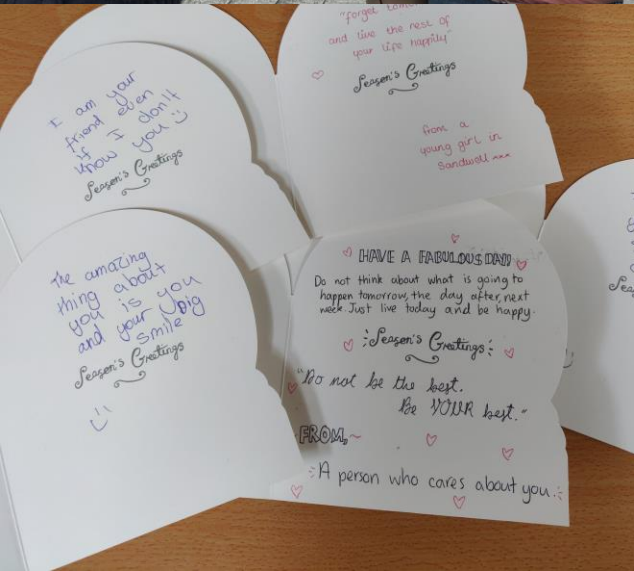 I am your
friend even
if I don't
know you
Season's Greetings
"forget
and live the rest of
your life happily"
Season's Greetings
from a
young girl in
Sandwell xxx
The amazing
thing about
you is you
and your big
smile
Season's Greetings
HAVE A FABULOUS DAY!
Do not think about what is going to
happen tomorrow, the day after, next
week. Just live today and be happy.
Season's Greetings
"Do not be the best.
Be YOUR best."
FROM,
A person who cares about you.